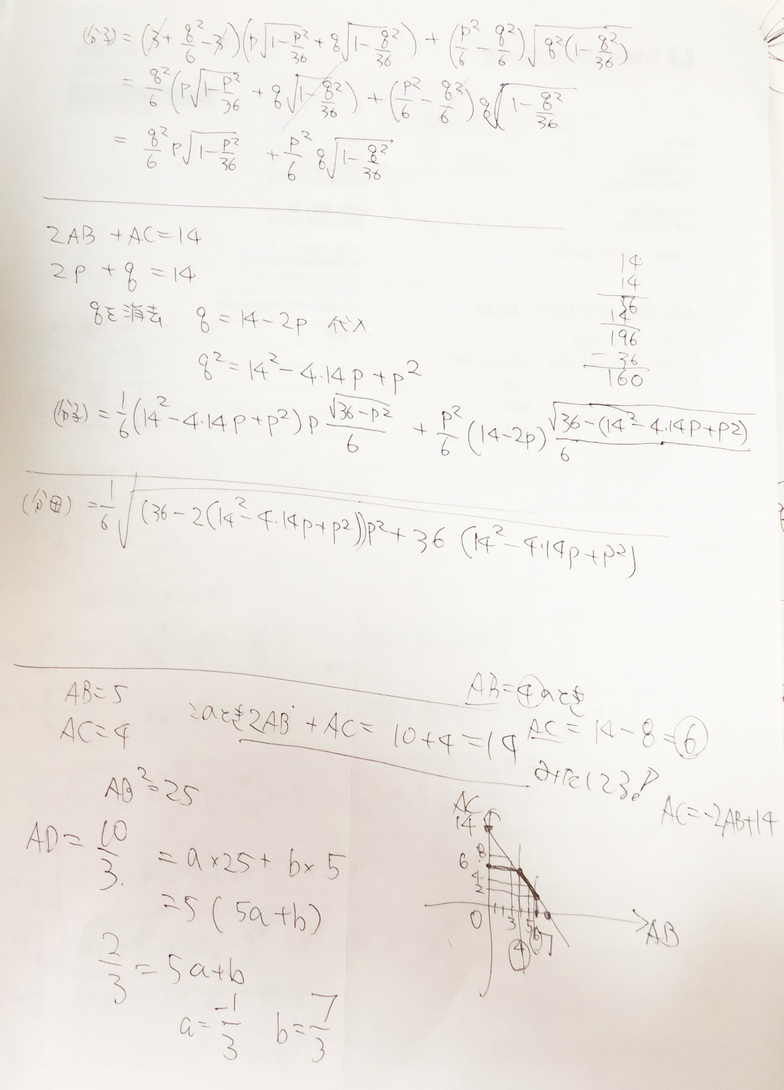 (分子) = (3 + q²/6 - 3)(p√(1 - p²/36) + q√(1 - q²/36)) + (p²/6 - q²/6)√(q²(1 - q²/36))
= q²/6 (p√(1 - p²/36) + q√(1 - q²/36)) + (p²/6 - q²/6) q√(1 - q²/36)
= q²/6 p√(1 - p²/36) + p²/6 q√(1 - q²/36)
2AB + AC = 14
2p + q = 14
qを消去 q = 14 - 2p 代入
q² = 14² - 4·14p + p²
14
14
56
14
196
- 36
160
(分子) = 1/6 (14² - 4·14p + p²) p √(36 - p²)/6 + p²/6 (14 - 2p) √(36 - (14² - 4·14p + p²))/6
(分母) = 1/6 √((36 - 2(14² - 4·14p + p²))p² + 36 (14² - 4·14p + p²))
AB = 5
AC = 4
このとき 2AB + AC = 10 + 4 = 14
AB = 4 のとき
AC = 14 - 8 = 6
みたにける?
AB² = 25
AD = 10/3 = a × 25 + b × 5
= 5 (5a + b)
2/3 = 5a + b
a = -1/3 b = 7/3
AC = -2AB + 14
AC
14
8
6
4
2
0 3 4 5 6 7 AB